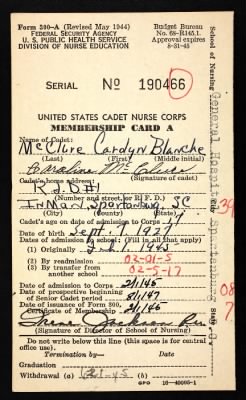 Form 300-A (Revised May 1944)
FEDERAL SECURITY AGENCY
U. S. PUBLIC HEALTH SERVICE
DIVISION OF NURSE EDUCATION
Budget Bureau
No. 68-R145.1.
Approval expires
8-31-45
SERIAL No 190466
UNITED STATES CADET NURSE CORPS
MEMBERSHIP CARD A
Name of Cadet:
McClure Carolyn Blanche
(Last) (First) (Middle initial)
(Signature of cadet)
Cadet's home address:
R.F.D #1
(Number and street, or R. F. D.)
Inman, Spartanburg, SC
(City) (County) (State)
Cadet's age on date of admission to Corps 17
Date of birth Sept. 7. 1927
Dates of admission to school: (Fill in all that apply)
(1) Originally 1945
(2) By readmission 02-01-5
(3) By transfer from another school 02-5-17
Date of admission to Corps 2/1/45
Date of prospective beginning of Senior Cadet period
Date of issuance of Form 300, Certificate of Membership
Irene Jackson
(Signature of Director of School of Nursing)
Do not write below this line (this space for central office use).
Termination by— Date
Graduation
Withdrawal (a) (b)
GPO 16-40005-1
School of Nursing
General Hospital
Spartanburg
39
08
7